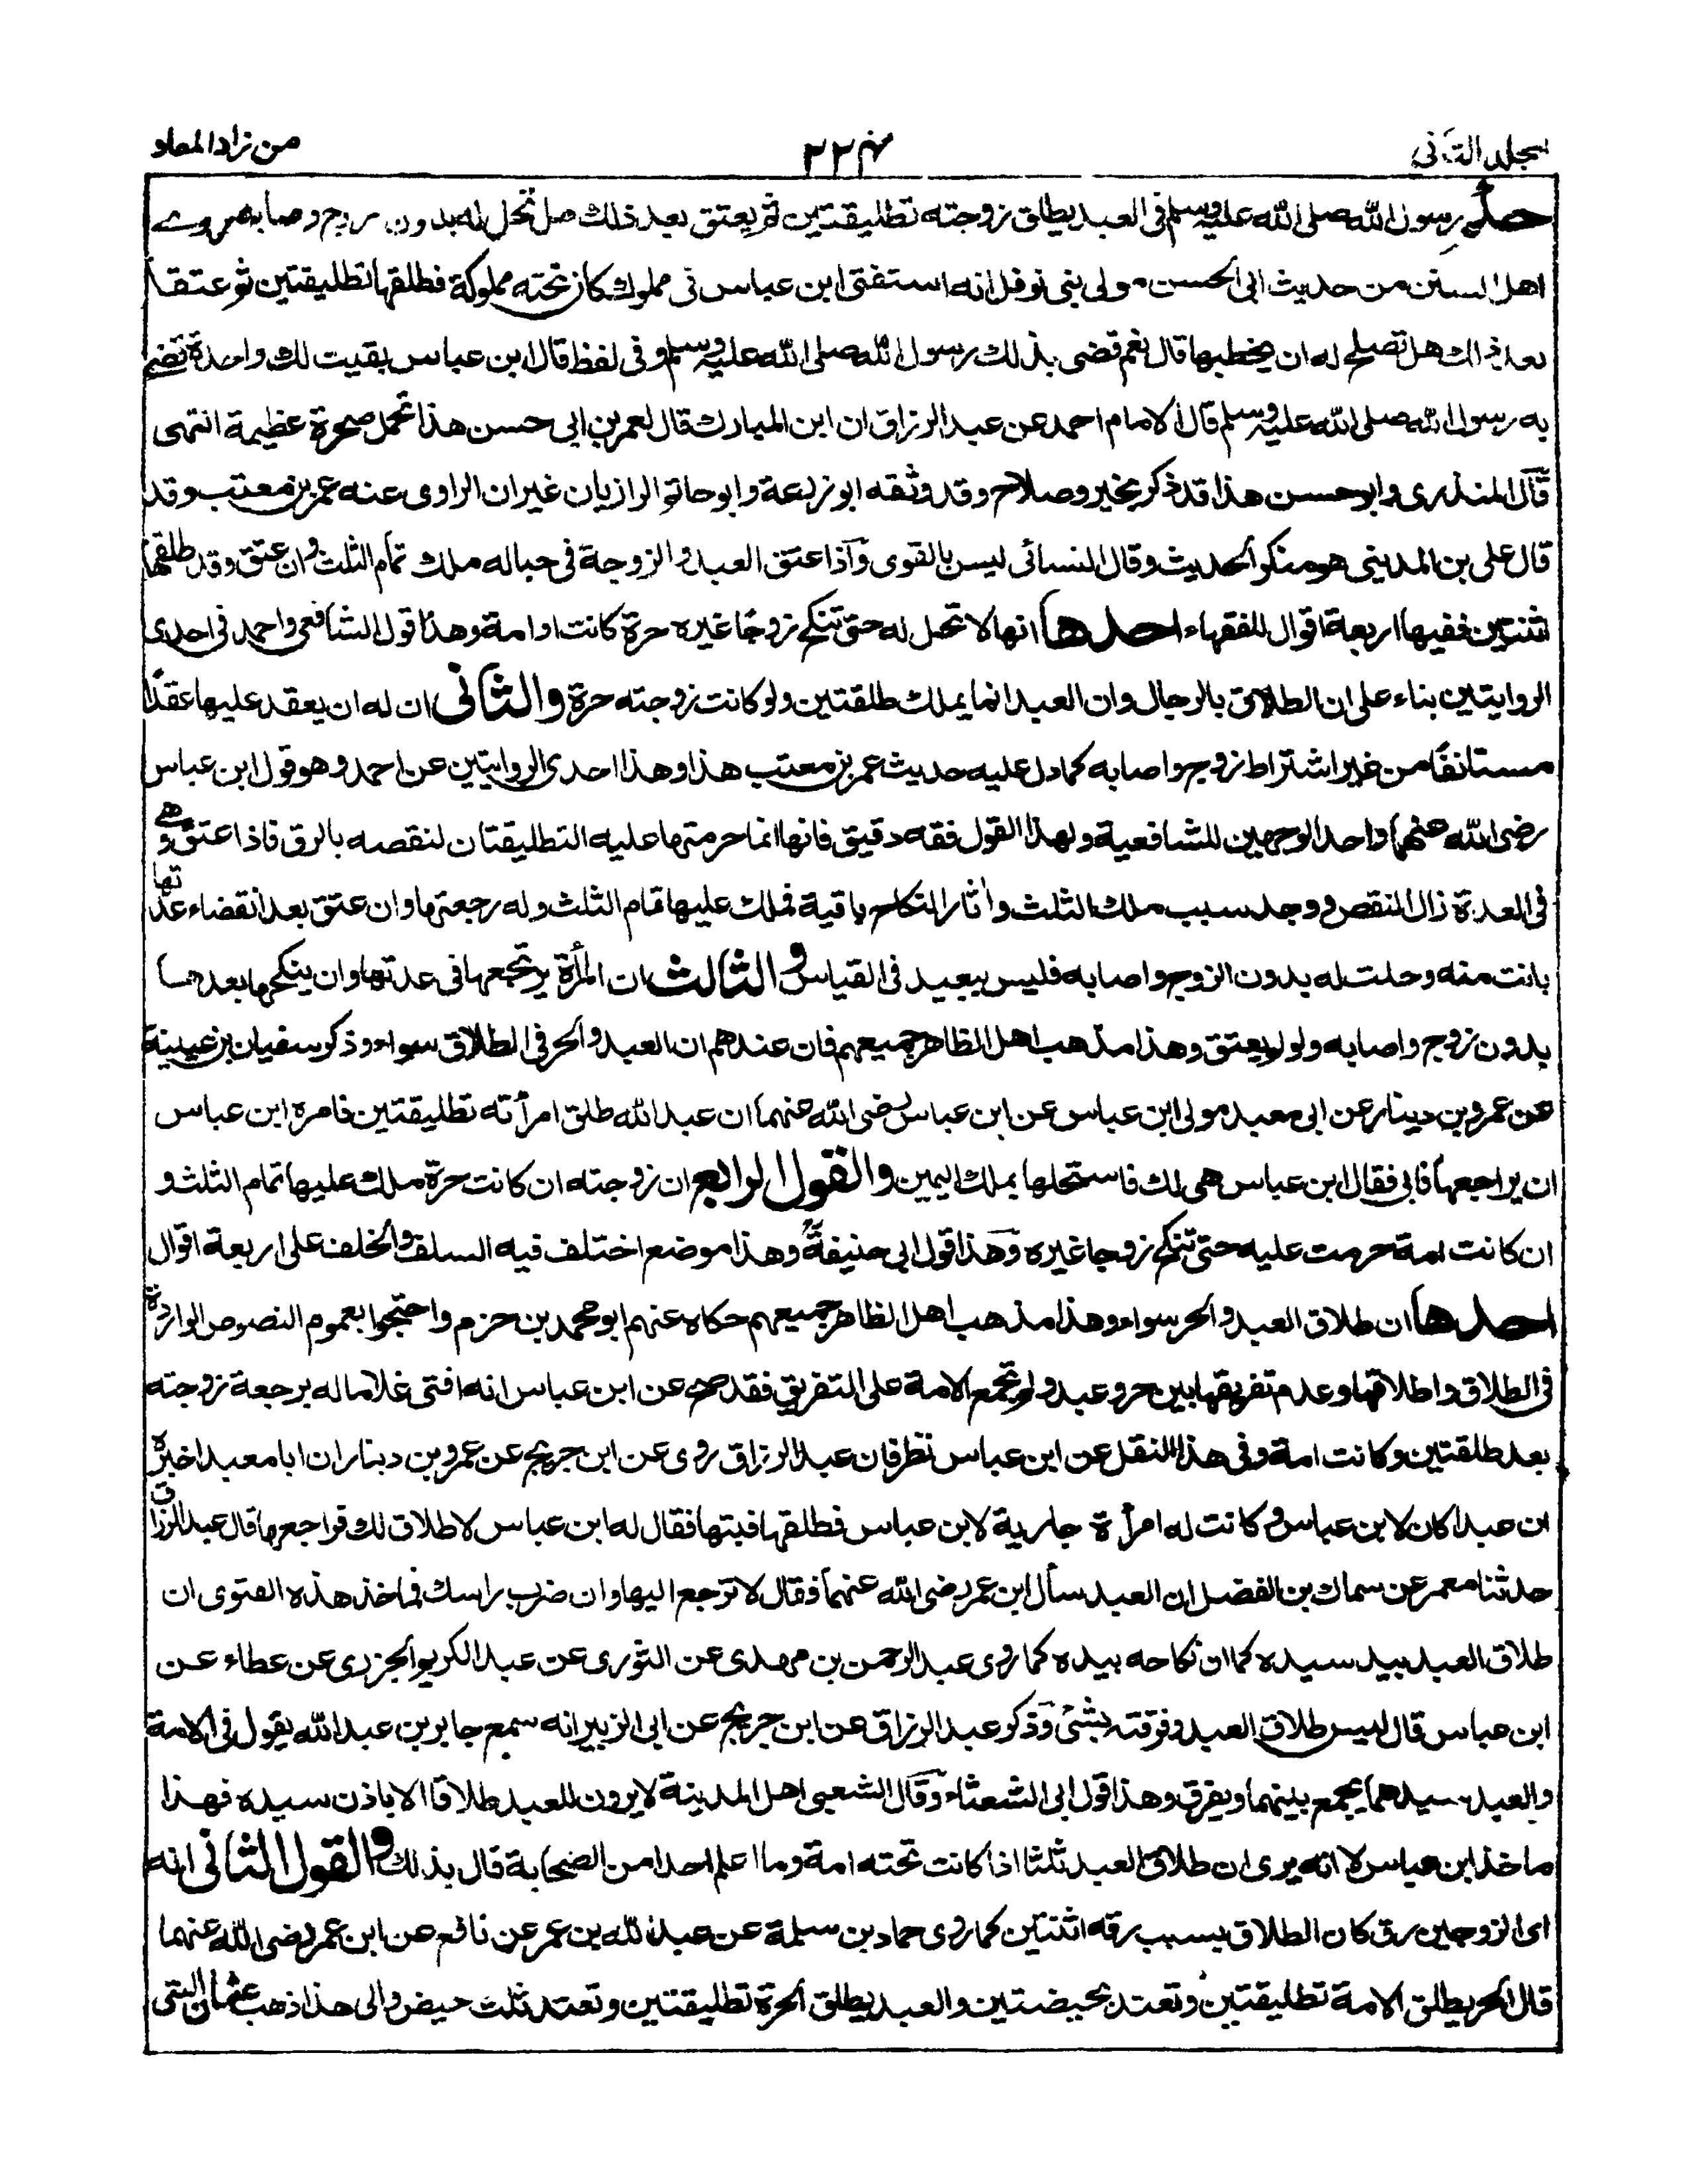 مجلد الثانى
٣٢٢
من زاد المعاد
حكم رسول الله صلى الله عليه وسلم فى العبد يطلق زوجته تطليقتين ثم يعتق بعد ذلك هل تحل له بدون زوج واصابة روى
اهل السنن من حديث ابى الحسن مولى بنى نوفل انه استفتى ابن عباس فى مملوك كان تحته مملوكة فطلقها تطليقتين ثم عتقا
بعد ذلك هل تصلح له ان يخطبها قال نعم قضى بذلك رسول الله صلى الله عليه وسلم وفى لفظ قال ابن عباس بقيت لك واحدة قضى
به رسول الله صلى الله عليه وسلم قال الامام احمد عن عبد الرزاق ان ابن المبارك قال لعمر بن ابى حسن هذا تحمل صخرة عظيمة انتهى
قال المنذرى وابو حسن هذا قد ذكر بخير وصلاح وقد وثقه ابو زرعة وابو حاتم الرازيان غير ان الراوى عنه عمر بن معتب وقد
قال على بن المدينى هو منكر الحديث وقال النسائى ليس بالقوى وآذا عتق العبد والزوجة فى حباله ملك تمام الثلث وان عتق وقد طلقها
اثنتين ففيها اربعة اقوال للفقهاء احدها انها لا تحل له حتى تنكح زوجا غيره حرة كانت او امة وهذا قول الشافعى واحمد فى احدى
الروايتين بناء على ان الطلاق بالرجال وان العبد انما يملك طلقتين ولو كانت زوجته حرة والثانى ان له ان يعقد عليها عقدًا
مستانفًا من غير اشتراط زوج واصابه كما دل عليه حديث عمر بن معتب هذا وهذا احدى الروايتين عن احمد وهو قول ابن عباس
رضى الله عنهما واحد الوجهين للشافعية ولهذا القول فقه دقيق فانها انما حرمتها عليه التطليقتان لنقصه بالرق فاذا عتق وهى
فى العدة زال النقص ووجد سبب ملك الثلث وآثار النكاح باقية فملك عليها تمام الثلث وله رجعتها وان عتق بعد انقضاء عدتها
بانت منه وحلت له بدون الزوج واصابه فليس ببعيد فى القياس والثالث ان المرأة يرتجعها فى عدتها وان ينكحها بعدها
بدون زوج واصابه ولو لم يعتق وهذا مذهب اهل الظاهر جميعهم فان عندهم ان العبد والحر فى الطلاق سواء وذكر سفيان بن عيينة
عن عمرو بن دينار عن ابى معبد مولى ابن عباس عن ابن عباس رضى الله عنهما ان عبد الله طلق امرأته تطليقتين فامره ابن عباس
ان يراجعها فابى فقال ابن عباس هى لك فاستحلها بملك اليمين والقول الرابع ان زوجته ان كانت حرة ملك عليها تمام الثلث و
ان كانت امة حرمت عليه حتى تنكح زوجا غيره وهذا قول ابى حنيفة وهذا موضع اختلف فيه السلف والخلف على اربعة اقوال
احدها ان طلاق العبد والحر سواء وهذا مذهب اهل الظاهر جميعهم حكاه عنهم ابو محمد بن حزم واحتجوا بعموم النصوص الواردة
فى الطلاق واطلاقها وعدم تفريقها بين حر وعبد ولم تجمع الامة على التفريق فقد صح عن ابن عباس انه افتى غلاما له برجعة زوجته
بعد طلقتين وكانت امة وفى هذا النقل عن ابن عباس نظر فان عبد الرزاق روى عن ابن جريج عن عمرو بن دينار ان ابا معبد اخبره
ان عبدا كان لابن عباس وكانت له امرأة جارية لابن عباس فطلقها فبتها فقال له ابن عباس لا طلاق لك فراجعها قال عبد الرزاق
حدثنا معمر عن سماك بن الفضل ان العبد سأل ابن عمر رضى الله عنهما فقال لا ترجع اليها وان ضرب راسك فماخذ هذه الفتوى ان
طلاق العبد بيد سيده كما ان نكاحه بيده كما روى عبد الرحمن بن مهدى عن الثورى عن عبد الكريم الجزرى عن عطاء عن
ابن عباس قال ليس طلاق العبد وفرقته بشئ وذكر عبد الرزاق عن ابن جريج عن ابى الزبير انه سمع جابر بن عبد الله يقول فى الامة
والعبد سيدهما يجمع بينهما ويفرق وهذا قول ابى الشعثاء وقال الشعبى اهل المدينة لا يرون للعبد طلاقا الا باذن سيده فهذا
ماخذ ابن عباس لا انه يرى ان طلاق العبد ثلثا اذا كانت تحته امة وما اعلم احدا من الصحابة قال بذلك والقول الثانى انه
اى الزوجين رق كان الطلاق بسبب رقه اثنتين كما روى حماد بن سلمة عن عبد الله بن عمر عن نافع عن ابن عمر رضى الله عنهما
قال الحر يطلق الامة تطليقتين وتعتد بحيضتين والعبد يطلق الحرة تطليقتين وتعتد ثلث حيض والى هذا ذهب عثمان البتى